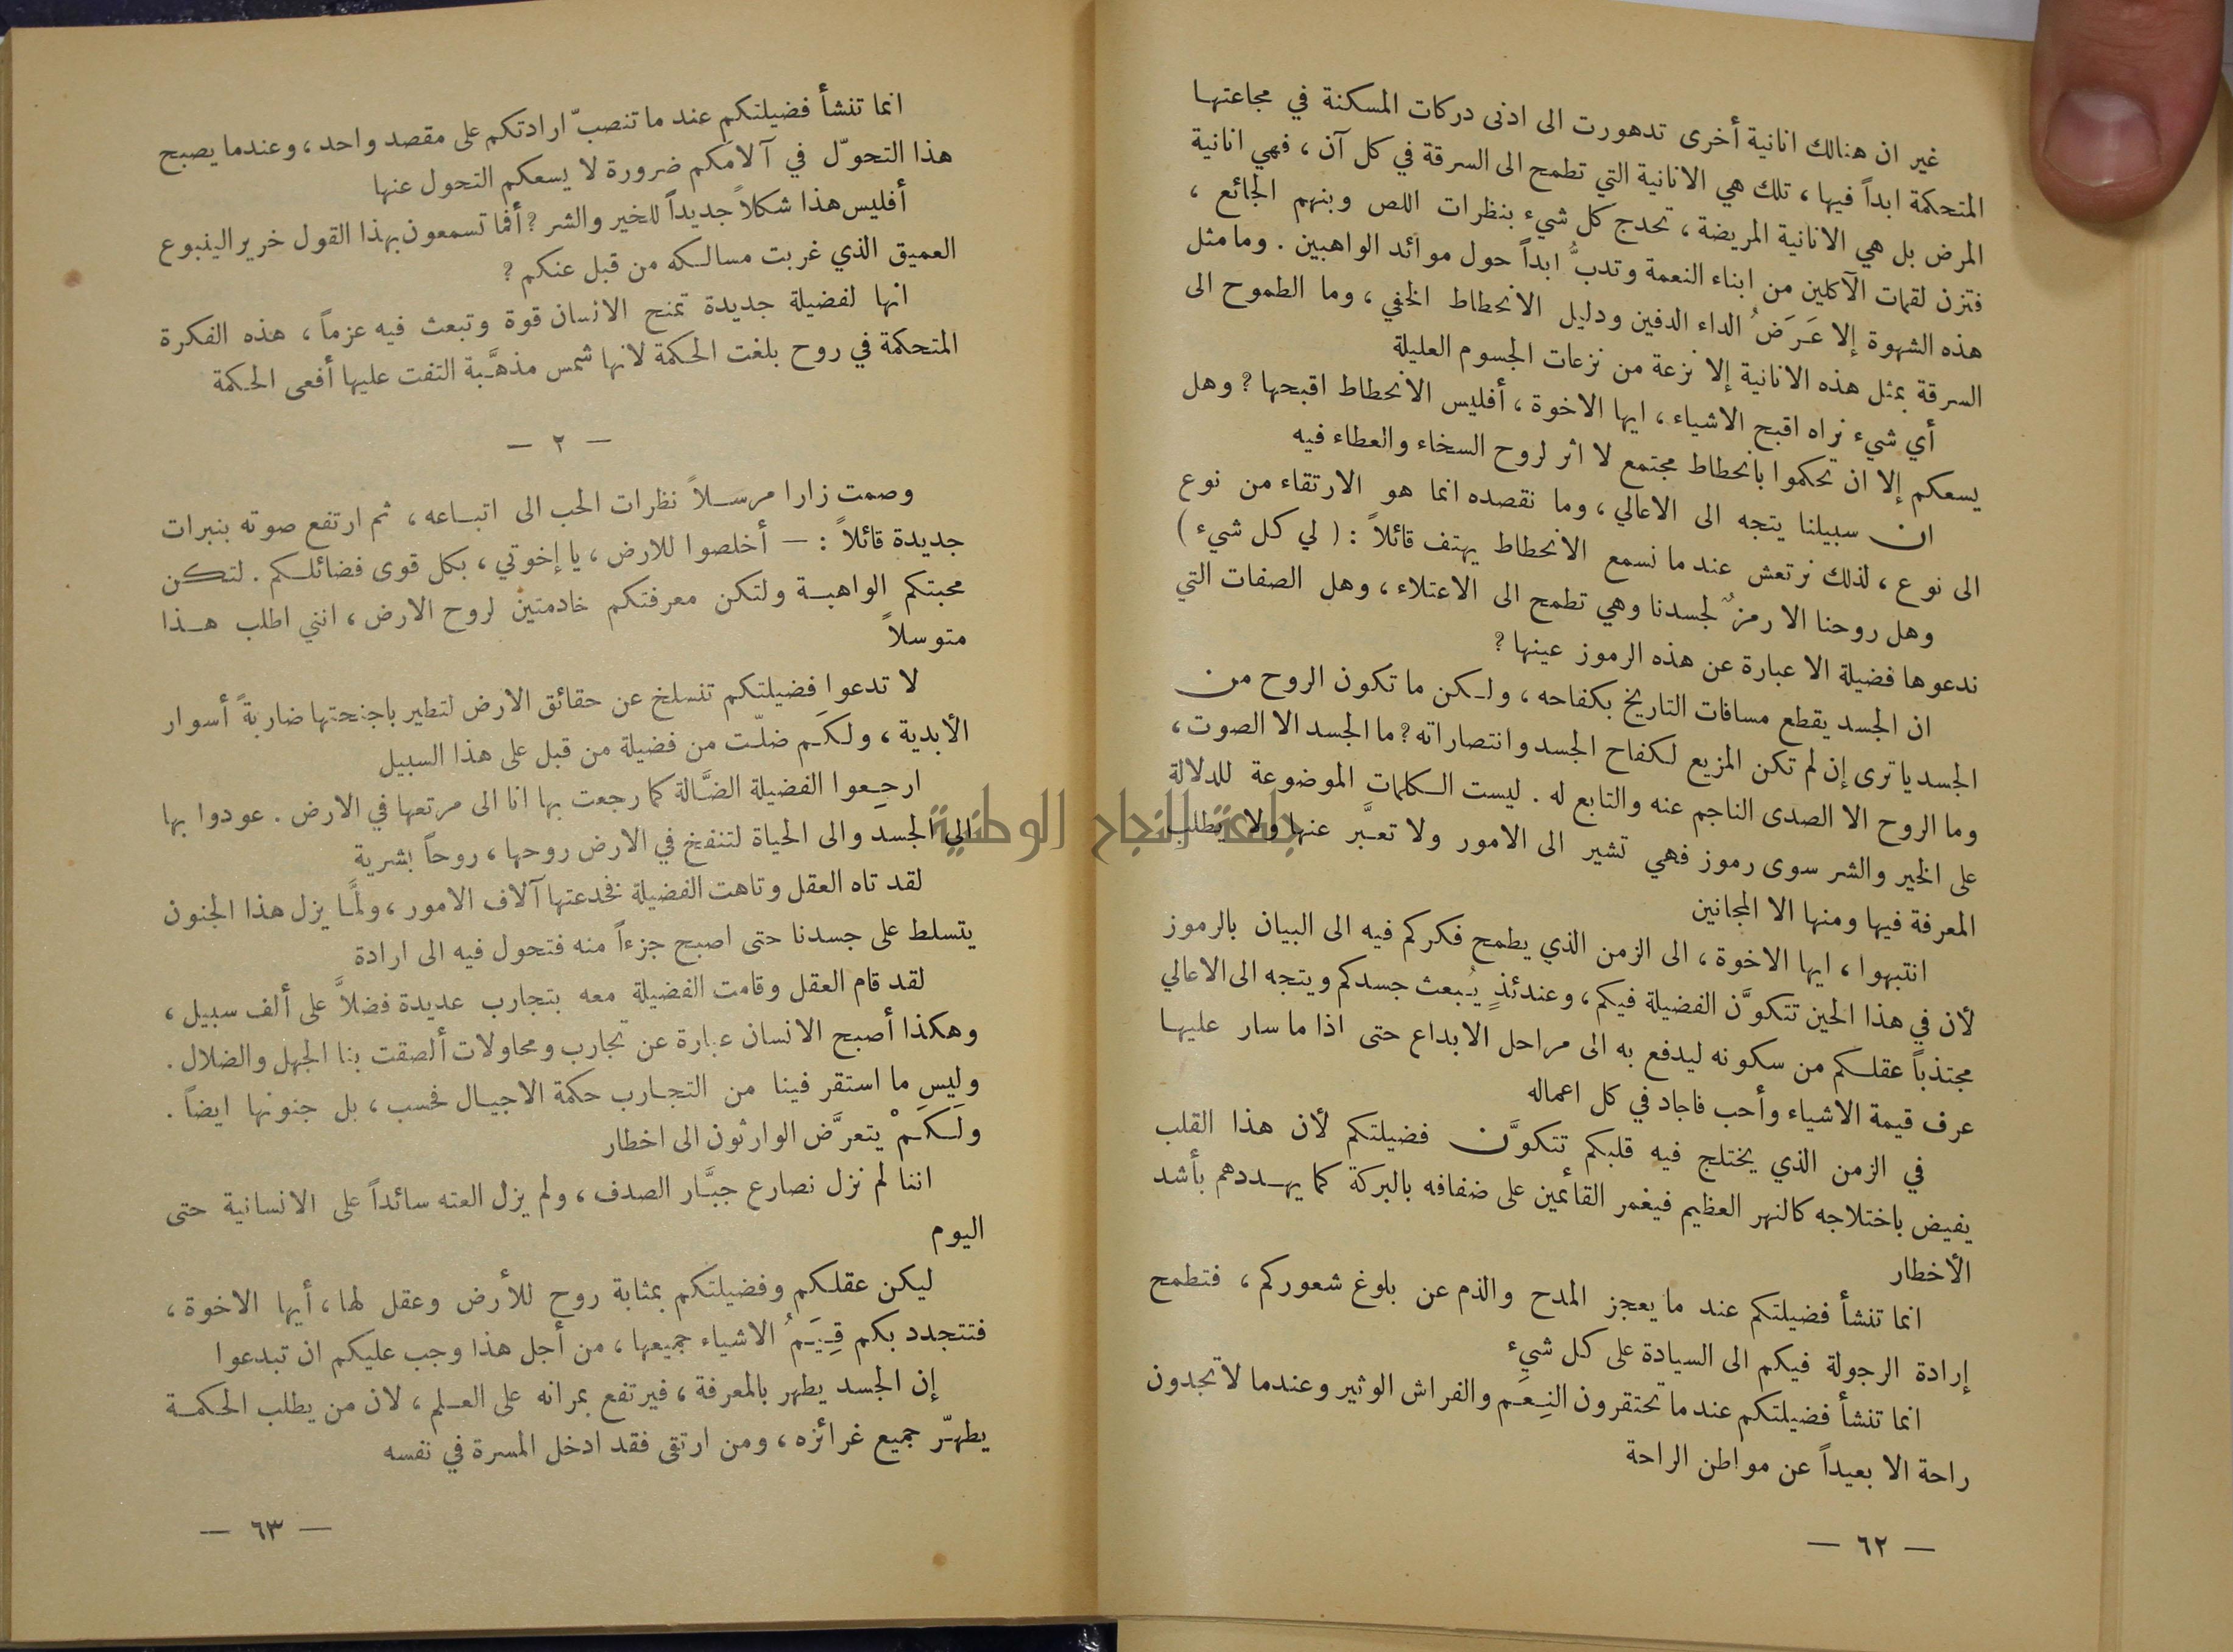 غير ان هنالك انانية أخرى تدهورت الى ادنى دركات المسكنة في مجاعتها
المتحكمة ابداً فيها ، تلك هي الانانية التي تطمح الى السرقة في كل آن ، فهي انانية
المرض بل هي الانانية المريضة ، تحدج كل شيء بنظرات اللص وبنهم الجائع ،
فتزن لقمات الآكلين من ابناء النعمة وتدبُّ ابداً حول موائد الواهبين . وما مثل
هذه الشهوة إلا عَرَضُ الداء الدفين ودليل الانحطاط الخفي ، وما الطموح الى
السرقة بمثل هذه الانانية إلا نزعة من نزعات الجسوم العليلة
أي شيء نراه اقبح الاشياء ، ايها الاخوة ، أفليس الانحطاط اقبحها ؟ وهل
يسعكم إلا ان تحكموا بانحطاط مجتمع لا اثر لروح السخاء والعطاء فيه
ان سبيلنا يتجه الى الاعالي ، وما نقصده انما هو الارتقاء من نوع
الى نوع ، لذلك نرتعش عندما نسمع الانحطاط يهتف قائلاً : ( لي كل شيء )
وهل روحنا الا رمزٌ لجسدنا وهي تطمح الى الاعتلاء ، وهل الصفات التي
ندعوها فضيلة الا عبارة عن هذه الرموز عينها ؟
ان الجسد يقطع مسافات التاريخ بكفاحه ، ولكن ما تكون الروح من
الجسد يا ترى إن لم تكن المزيع لكفاح الجسد وانتصاراته ؟ ما الجسد الا الصوت ،
وما الروح الا الصدى الناجم عنه والتابع له . ليست الكلمات الموضوعة للدلالة
على الخير والشر سوى رموز فهي تشير الى الامور ولا تعبَّر عنها ولا يطلب
المعرفة فيها ومنها الا المجانين
انتبهوا ، ايها الاخوة ، الى الزمن الذي يطمح فكركم فيه الى البيان بالرموز
لأن في هذا الحين تتكوَّن الفضيلة فيكم ، وعندئذٍ يُبعث جسدكم ويتجه الى الاعالي
مجتذباً عقلكم من سكونه ليدفع به الى مراحل الابداع حتى اذا ما سار عليها
عرف قيمة الاشياء وأحب فاجاد في كل اعماله
في الزمن الذي يختلج فيه قلبكم تتكوَّن فضيلتكم لأن هذا القلب
يفيض باختلاجه كالنهر العظيم فيغمر القائمين على ضفافه بالبركة كما يهددهم بأشد
الأخطار
انما تنشأ فضيلتكم عند ما يعجز المدح والذم عن بلوغ شعوركم ، فتطمح
إرادة الرجولة فيكم الى السيادة على كل شيء
انما تنشأ فضيلتكم عندما تحتقرون النِعَم والفراش الوثير وعندما لا تجدون
راحة الا بعيداً عن مواطن الراحة
— ٦٢ —
انما تنشأ فضيلتكم عندما تنصبّ ارادتكم على مقصد واحد ، وعندما يصبح
هذا التحوّل في آلامكم ضرورة لا يسعكم التحول عنها
أفليس هذا شكلاً جديداً للخير والشر ؟ أفما تسمعون بهذا القول خرير الينبوع
العميق الذي غربت مسالكه من قبل عنكم ؟
انها لفضيلة جديدة تمنح الانسان قوة وتبعث فيه عزماً ، هذه الفكرة
المتحكمة في روح بلغت الحكمة لانها شمس مذهَّبة التفت عليها أفعى الحكمة
— ٢ —
وصمت زارا مرسلاً نظرات الحب الى اتباعه ، ثم ارتفع صوته بنبرات
جديدة قائلاً : — أخلصوا للارض ، يا إخوتي ، بكل قوى فضائلكم . لتكن
محبتكم الواهبة ولتكن معرفتكم خادمتين لروح الارض ، انني اطلب هذا
متوسلاً
لا تدعوا فضيلتكم تنسلخ عن حقائق الارض لتطير باجنحتها ضاربةً أسوار
الأبدية ، ولكَم ضلّت من فضيلة من قبل على هذا السبيل
ارجِعوا الفضيلة الضَّالة كما رجعت بها انا الى مرتعها في الارض . عودوا بها
الى الجسد والى الحياة لتنفخ في الارض روحها ، روحاً بشرية
لقد تاه العقل وتاهت الفضيلة فخدعتها آلاف الامور ، ولمَّا يزل هذا الجنون
يتسلط على جسدنا حتى اصبح جزءاً منه فتحول فيه الى ارادة
لقد قام العقل وقامت الفضيلة معه بتجارب عديدة فضلاً على ألف سبيل ،
وهكذا أصبح الانسان عبارة عن تجارب ومحاولات ألصقت بنا الجهل والضلال .
وليس ما استقر فينا من التجارب حكمة الاجيال فحسب ، بل جنونها ايضاً .
ولَكَمْ يتعرَّض الوارثون الى اخطار
اننا لم نزل نصارع جبَّار الصدف ، ولم يزل العته سائداً على الانسانية حتى
اليوم
ليكن عقلكم وفضيلتكم بمثابة روح للأرض وعقل لها ، أيها الاخوة ،
فتتجدد بكم قِيَمُ الاشياء جميعها ، من أجل هذا وجب عليكم ان تبدعوا
إن الجسد يطهر بالمعرفة ، فيرتفع بمرانه على العلم ، لان من يطلب الحكمة
يطهّر جميع غرائزه ، ومن ارتقى فقد ادخل المسرة في نفسه
— ٦٣ —
جامعة النجاح الوطنية